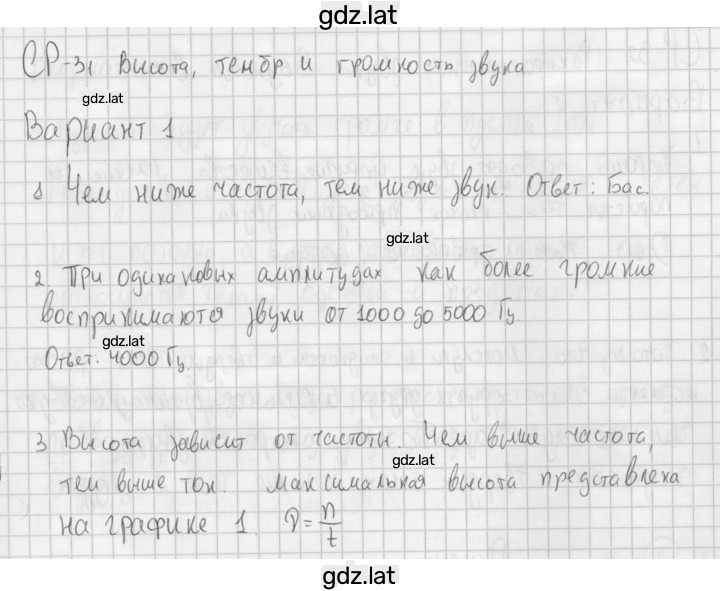 gdz.lat
СР-31 Высота, тембр и громкость звука
gdz.lat
Вариант 1
1 Чем ниже частота, тем ниже звук. Ответ: Бас.
gdz.lat
2 При одинаковых амплитудах как более громкие
воспринимаются звуки от 1000 до 5000 Гц.
gdz.lat
Ответ: 4000 Гц.
3 Высота зависит от частоты. Чем выше частота,
gdz.lat
тем выше тон. Максимальная высота представлена
на графике 1. ν = n/t
gdz.lat
gdz.lat